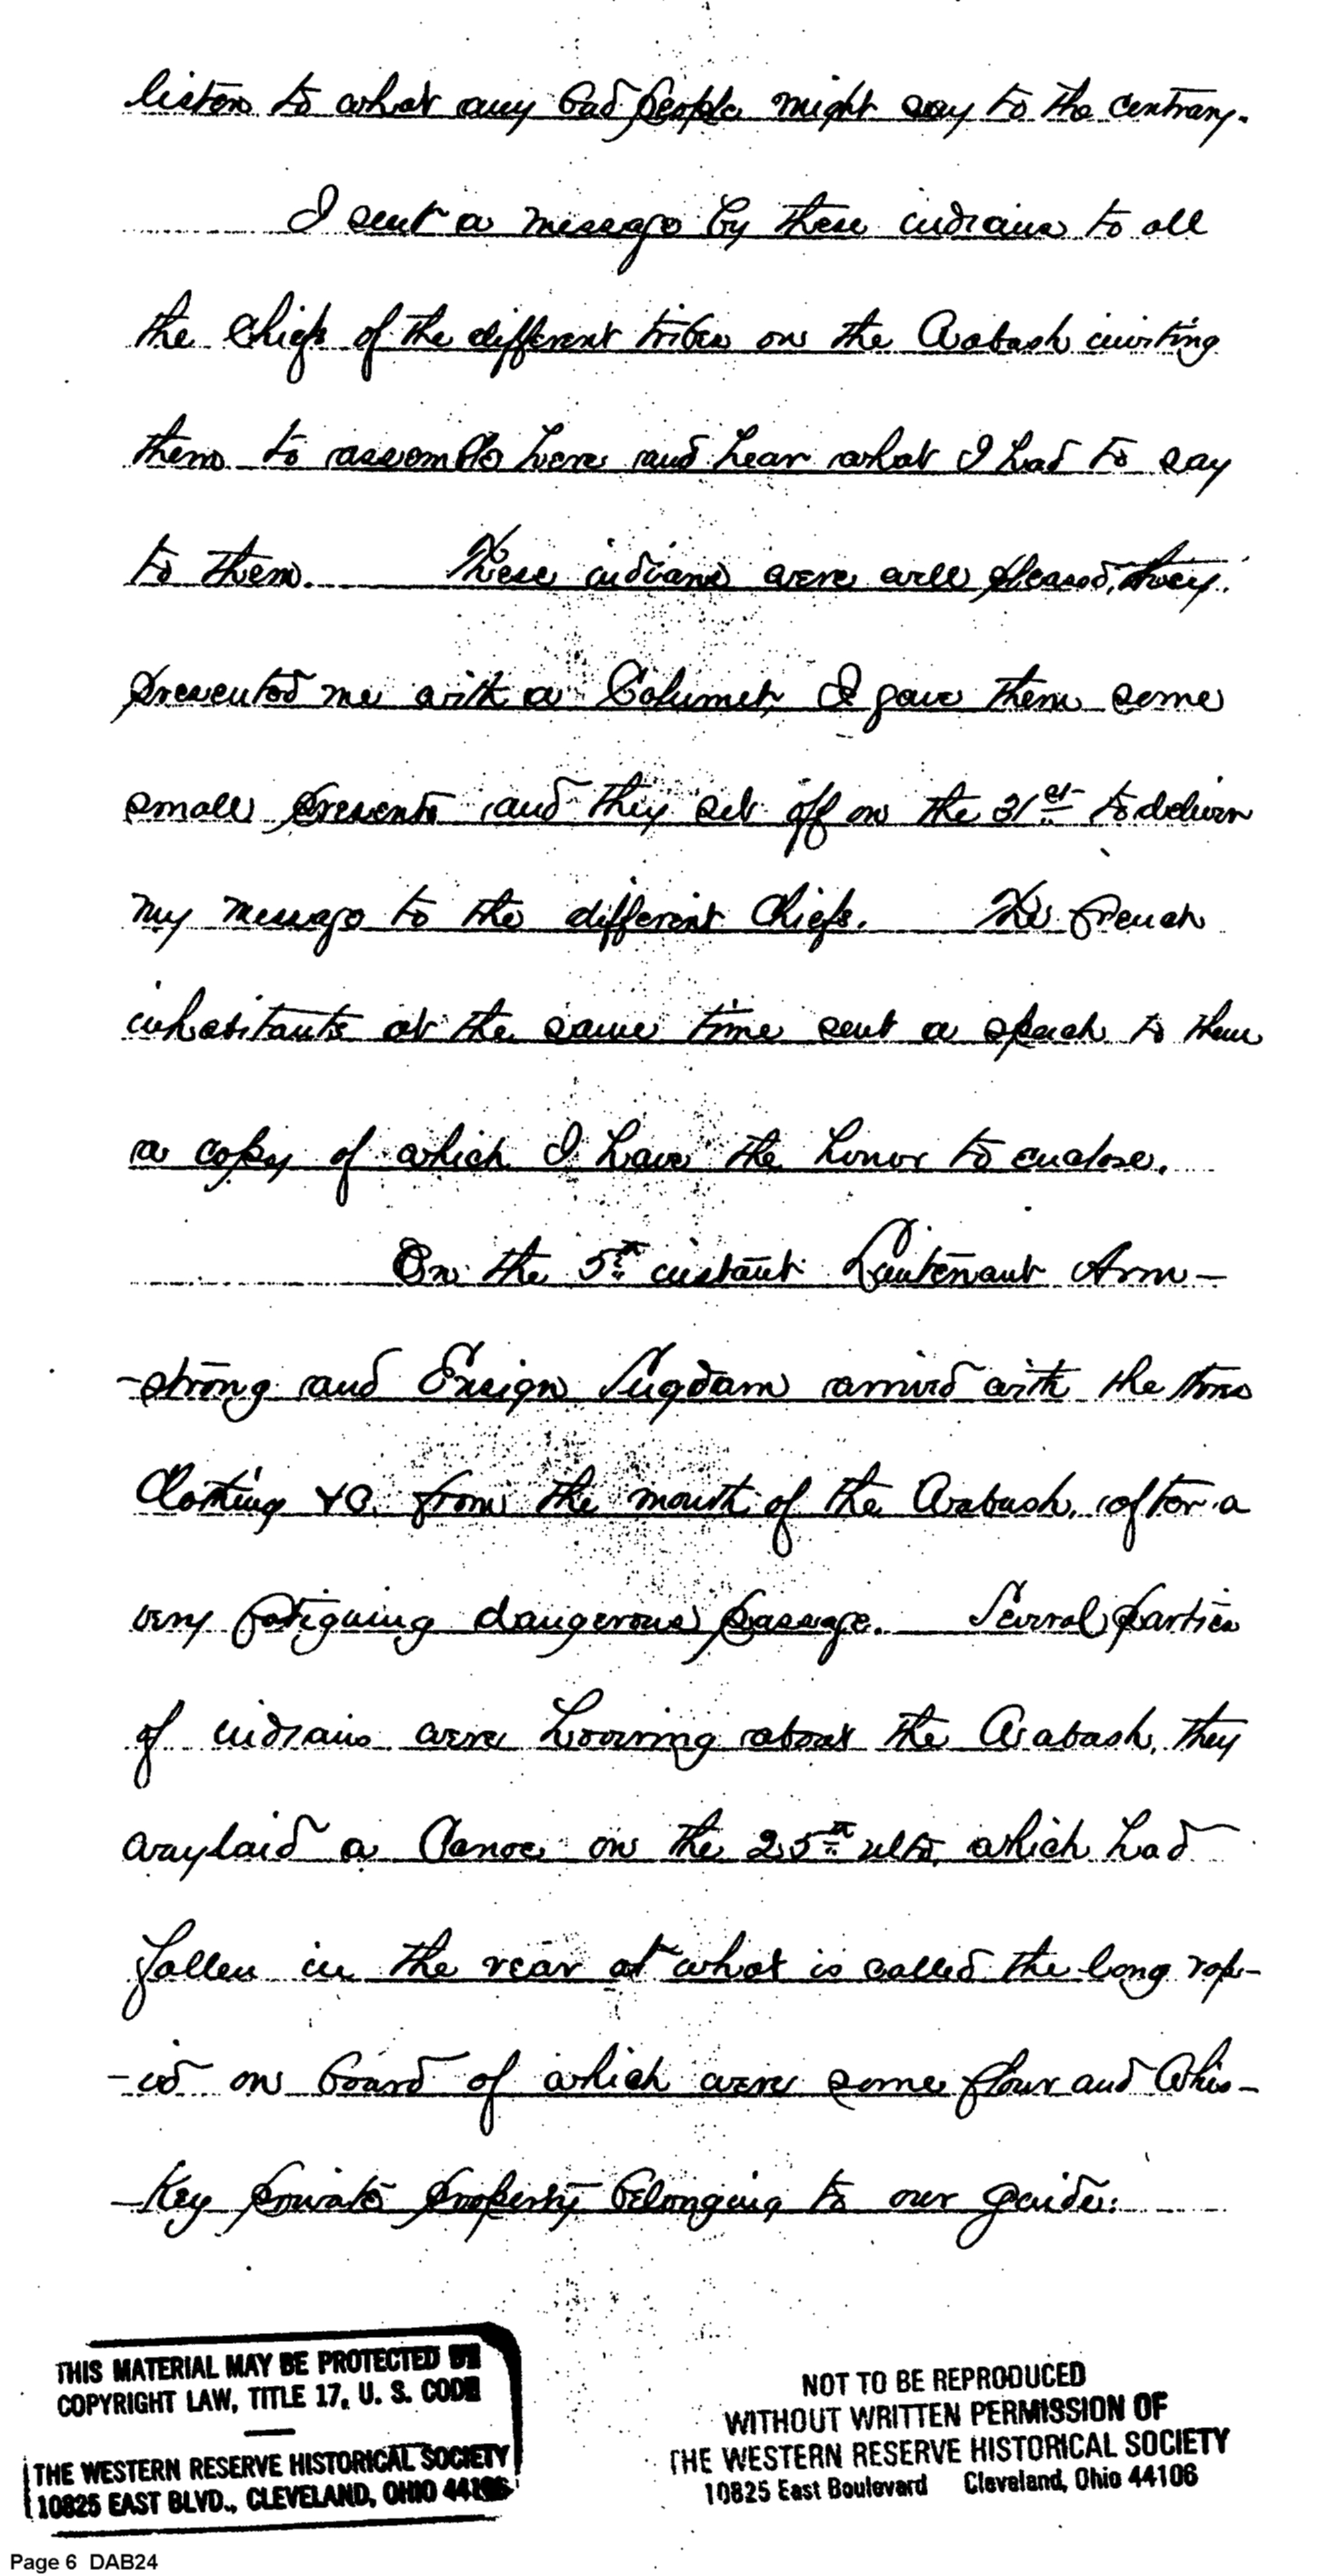 listen to what any bad people might say to the contrary.
I sent a message by these indians to all
the Chiefs of the different tribes on the Wabash inviting
them to assemble here and hear what I had to say
to them. These indians were well pleased, they
presented me with a Calumet, I gave them some
small presents and they set off on the 31st to deliver
my message to the different Chiefs. The french
inhabitants at the same time sent a speech to them
a copy of which I have the honor to enclose.
On the 5th instant Lieutenant Arm-
-strong and Ensign Sugdam arrived with the
Clothing &C. from the mouth of the Wabash, after a
very fatiguing dangerous passage. Several parties
of indians were hovering about the Wabash, they
waylaid a Canoe on the 25th ulto, which had
fallen in the rear at what is called the long rap-
-id on board of which were some flour and Whis-
-key private property belonging to our guide.
THIS MATERIAL MAY BE PROTECTED BY
COPYRIGHT LAW, TITLE 17, U. S. CODE
THE WESTERN RESERVE HISTORICAL SOCIETY
10825 EAST BLVD., CLEVELAND, OHIO 44106
NOT TO BE REPRODUCED
WITHOUT WRITTEN PERMISSION OF
THE WESTERN RESERVE HISTORICAL SOCIETY
10825 East Boulevard Cleveland, Ohio 44106
Page 6 DAB24